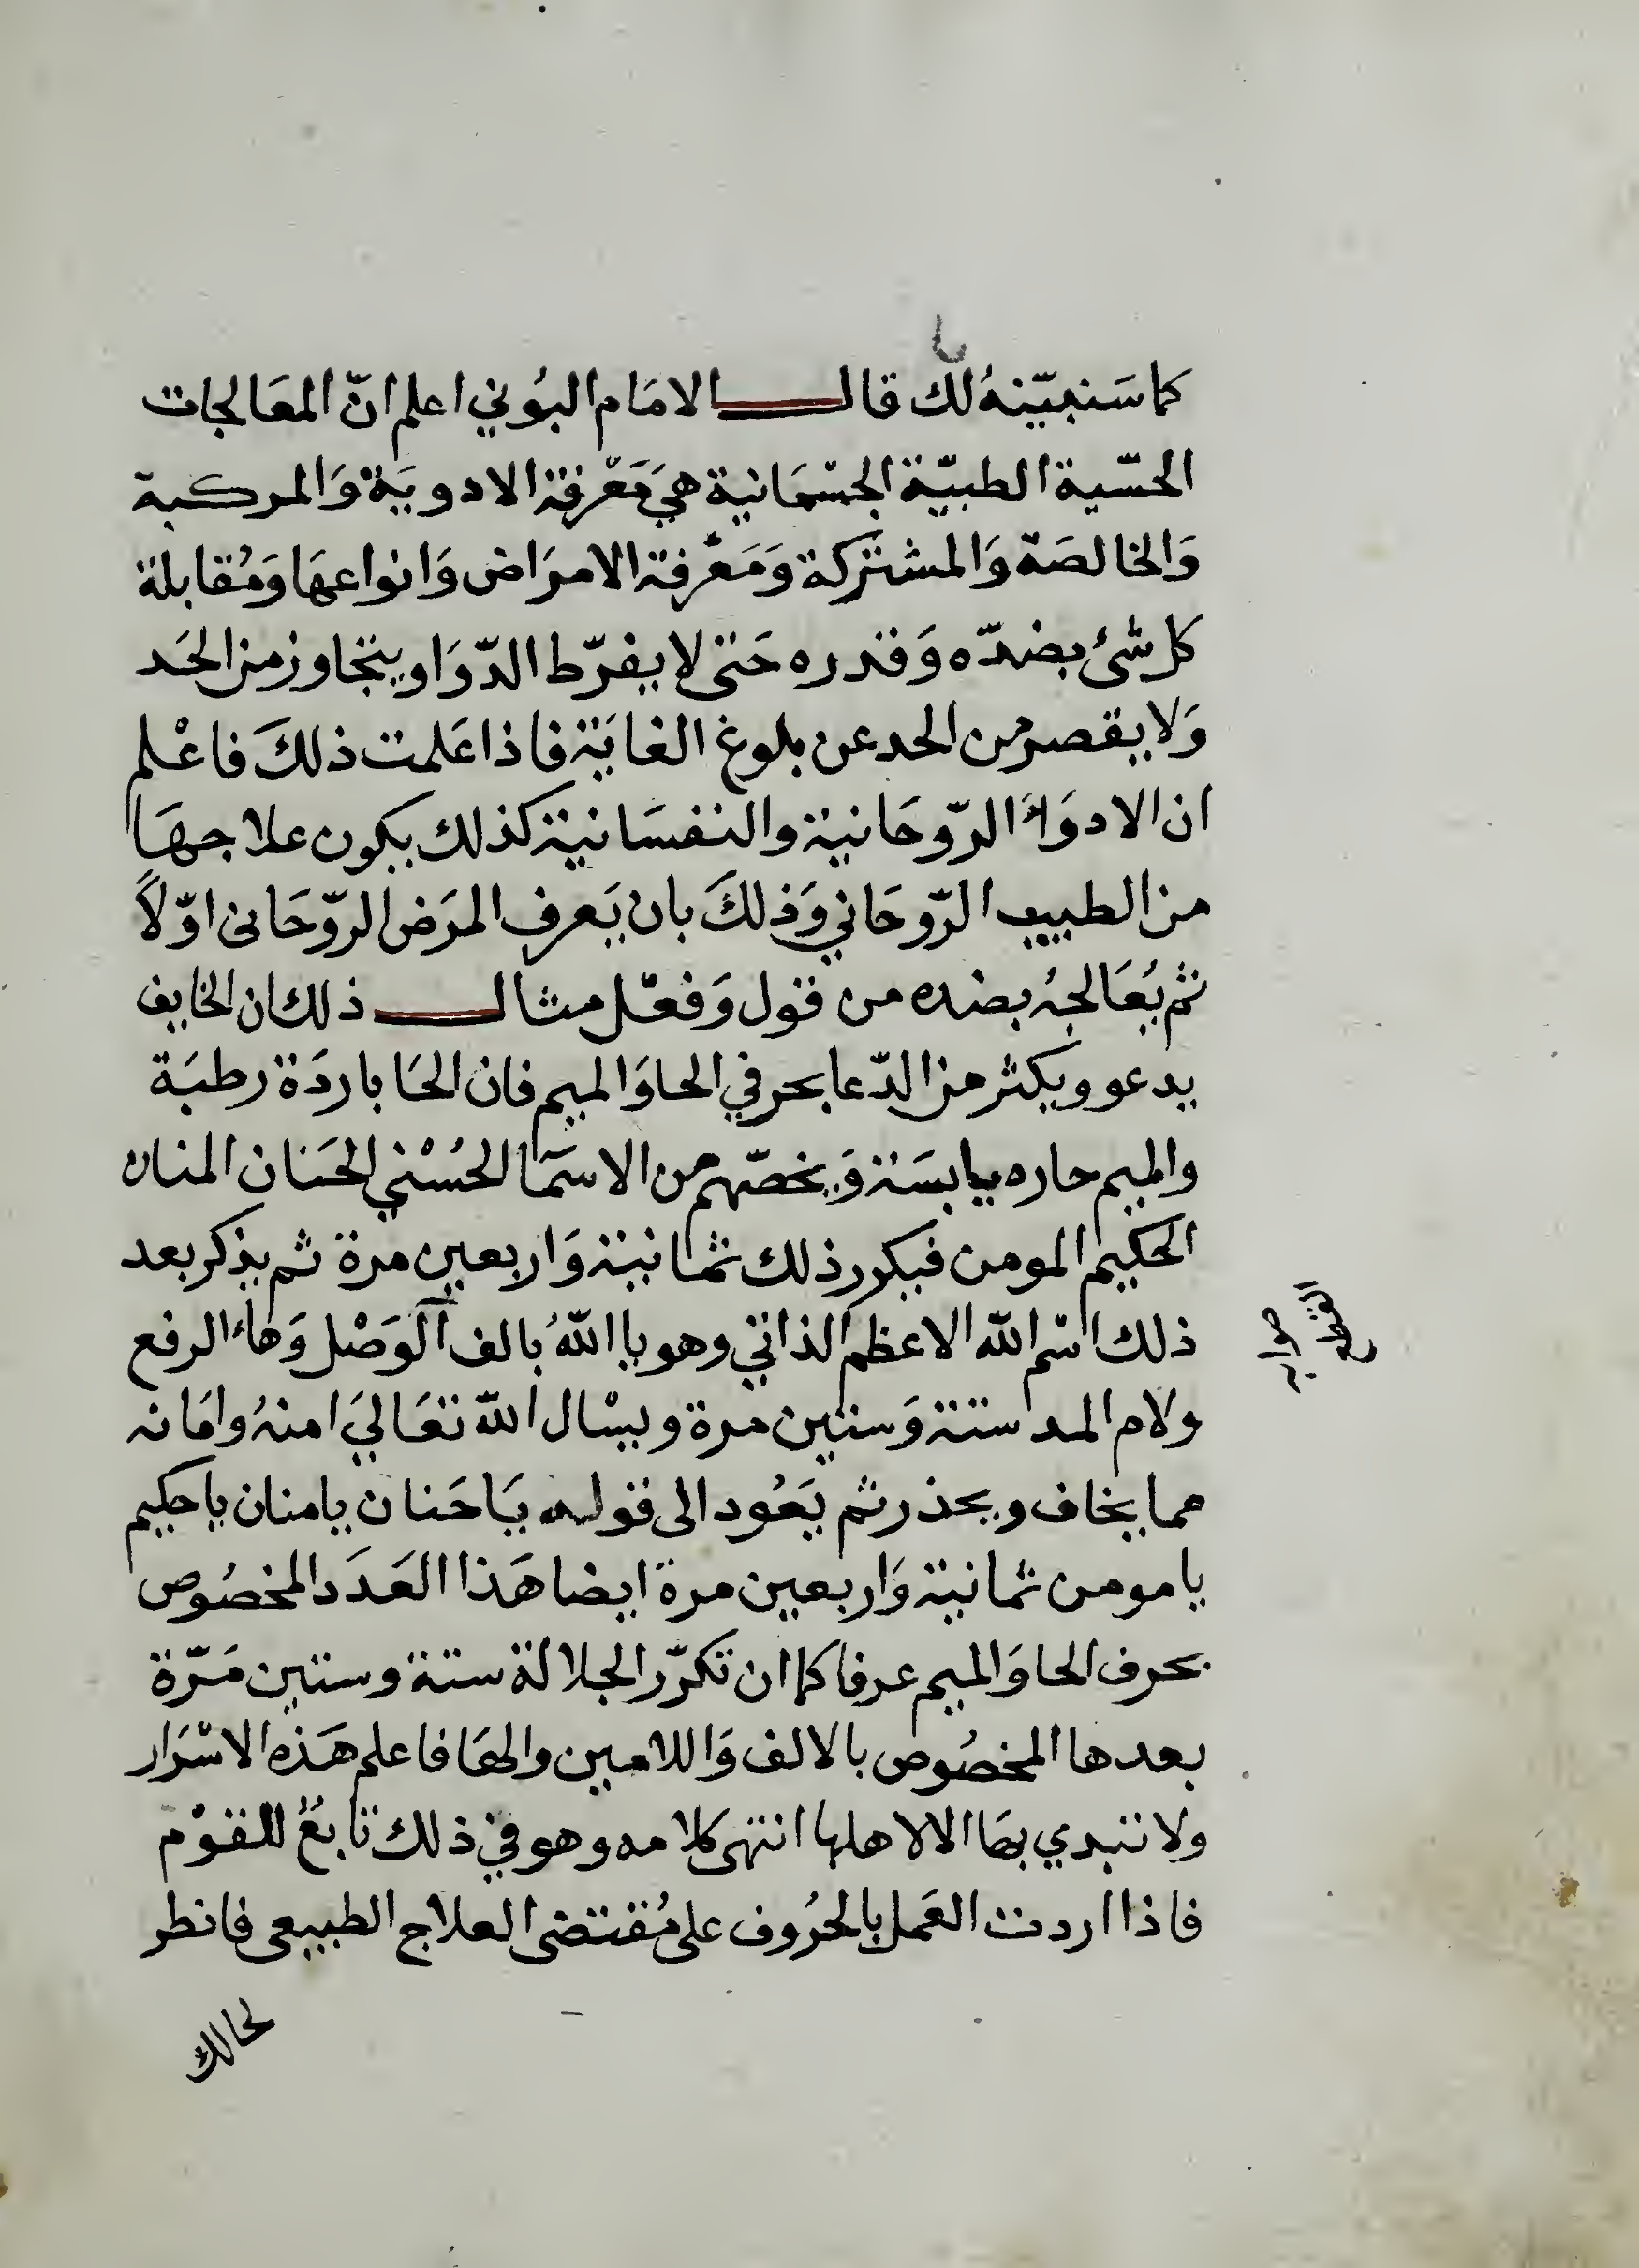 كما سَنبيّنهُ لك قال الامَام البُوني اعلم انّ المعَالجات
الحسّية الطبيّة الجسْمَانية هيَ مَعْرفة الادويَة وَالمركبة
وَالخالصَة وَالمشتركة وَمَعْرفة الامرَاض وَانواعهَا وَمُقابلة
كل شئ بضدّه وَقدره حَتى لا يفرّط الدّوَا ويتجاوز من الحَد
وَلا يقصر من الحد عن بلوغ الغايَة فاذا عَلمت ذلكَ فاعْلم
ان الادوَاءَ الرّوحَانية والنفسَانية كذلك يكون علاجهَا
من الطبيب الرّوحَاني وَذلكَ بان يَعرف المرَض الرّوحَانى اوّلاً
ثم يُعَالجهُ بضده من قول وَفعْل مثال ذلك ان الخايف
يدعو ويكثر من الدّعا بحرفي الحا وَالميم فان الحَا باردَة رطبَة
والميم حاره يابسَة وَيخصّهم من الاسمَا الحُسْني الحَنان المنان
الحكيم المومن فيكرر ذلك ثمانية وَاربعين مرة ثم يذكر بعد
ذلك اسْم الله الاعظم الذاتي وهو يا اللهُ بالف الوَصْل وَهاءُ الرفع
ولام المد ستة وَستين مرة ويسْال الله تعَاليَ امنهُ وامَانه
مما يخاف ويحذر ثم يَعُود الى قوله يَا حَنان يا منان يا حكيم
يا مومن ثمانية وَاربعين مرة ايضا هَذا العَدَد المخصُوص
بحرف الحا وَالميم عرفا كما ان تكرّر الجلالة ستة وستين مَرّة
بعدها المخصُوص بالالف وَاللامين والهَا فاعلم هَذه الاسْرَار
ولا تبدي بهَا الا لاهلها انتهى كلامه وهو في ذلك تابعُ للقوْم
فاذا اردت العَمل بالحرُوف على مُقتضى العلاج الطبيعى فانظر
لحالك
صوابه
القطع